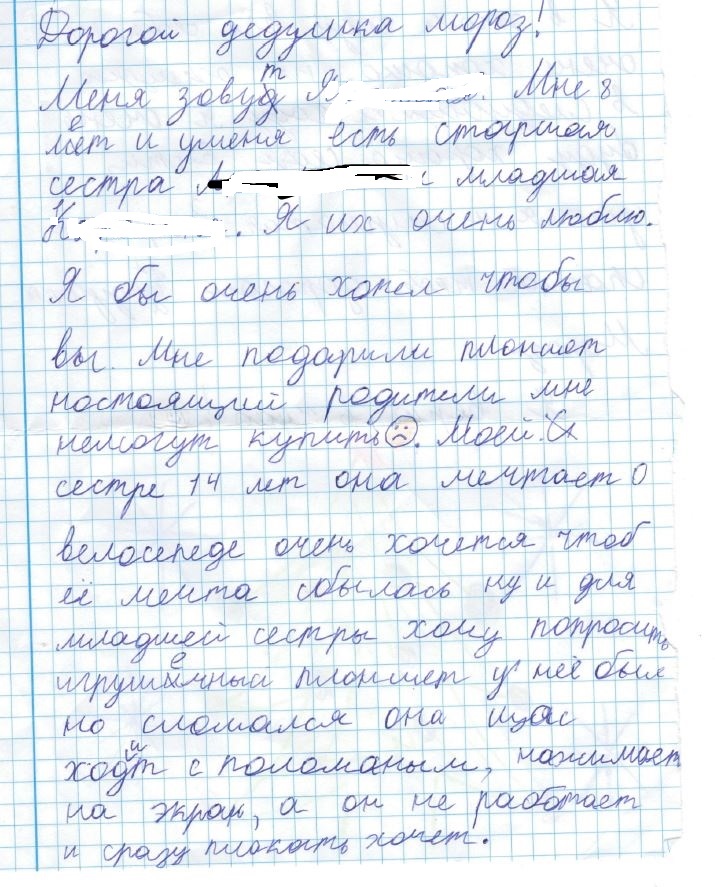 Дорогой дедушка мороз!
Меня зовут Я. Мне 8
лет и уменя есть старшая
сестра и младшая
К. Я их очень люблю.
Я бы очень хотел чтобы
вы. Мне подарили планшет
настоящий родители мне
немогут купить☹. Моей
сестре 14 лет она мечтает о
велосепеде очень хочется чтоб
её мечта сбылась ну и для
младшей сестры хочу попросить
игрушечный планшет у неё был
но сломался она щас
ходит с поломаным, нажимает
на экран, а он не работает
и сразу плакать хочет.